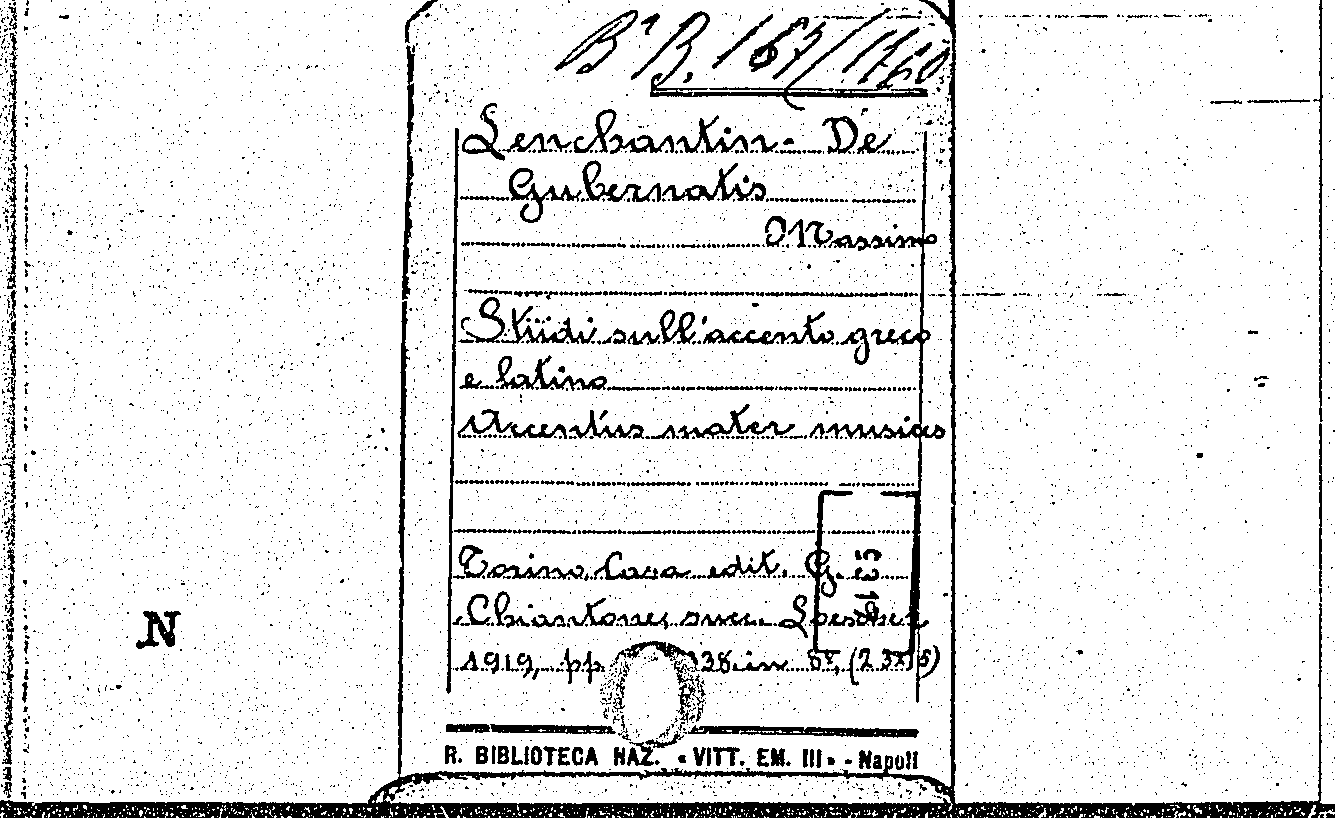 Bª B. 167/1760
Lenchantin - De
Gubernatis
Massimo
Studi sull'accento greco
e latino
Accentus mater musices
Torino, Casa edit. G.
Chiantone, succ. Loescher
1919, pp 38. in 8º, (23x15)
N
R. BIBLIOTECA NAZ. «VITT. EM. III» - Napoli